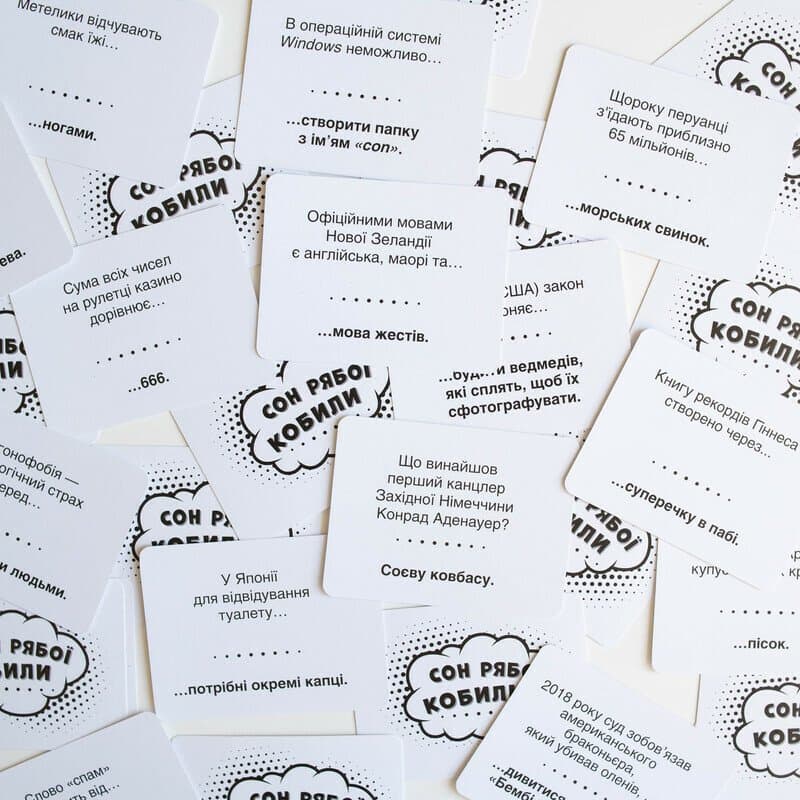 Метелики відчувають
смак їжі...
...ногами.
В операційній системі
Windows неможливо...
...створити папку
з ім'ям «con».
Щороку перуанці
з'їдають приблизно
65 мільйонів...
...морських свинок.
СОН
КОБИЛИ
СОН РЯБОЇ
КОБИЛИ
Офіційними мовами
Нової Зеландії
є англійська, маорі та...
...мова жестів.
Сума всіх чисел
на рулетці казино
дорівнює...
...666.
(США) закон
...будити ведмедів,
які сплять, щоб їх
сфотографувати.
СОН РЯБОЇ
КОБИЛИ
СОН РЯБОЇ
КОБИЛИ
Книгу рекордів Гіннеса
створено через...
...суперечку в пабі.
Що винайшов
перший канцлер
Західної Німеччини
Конрад Аденауер?
Соєву ковбасу.
страх
людьми.
СОН РЯБОЇ
РЯБОЇ
КОБИЛИ
У Японії
для відвідування
туалету...
...потрібні окремі капці.
...пісок.
СОН РЯБОЇ
КОБИЛИ
СОН РЯБОЇ
КОБИЛИ
СОН
2018 року суд зобов'язав
американського
браконьєра,
який убивав оленів,
...дивитися
«Бембі
Слово «спам»
від...
СОН РЯБОЇ